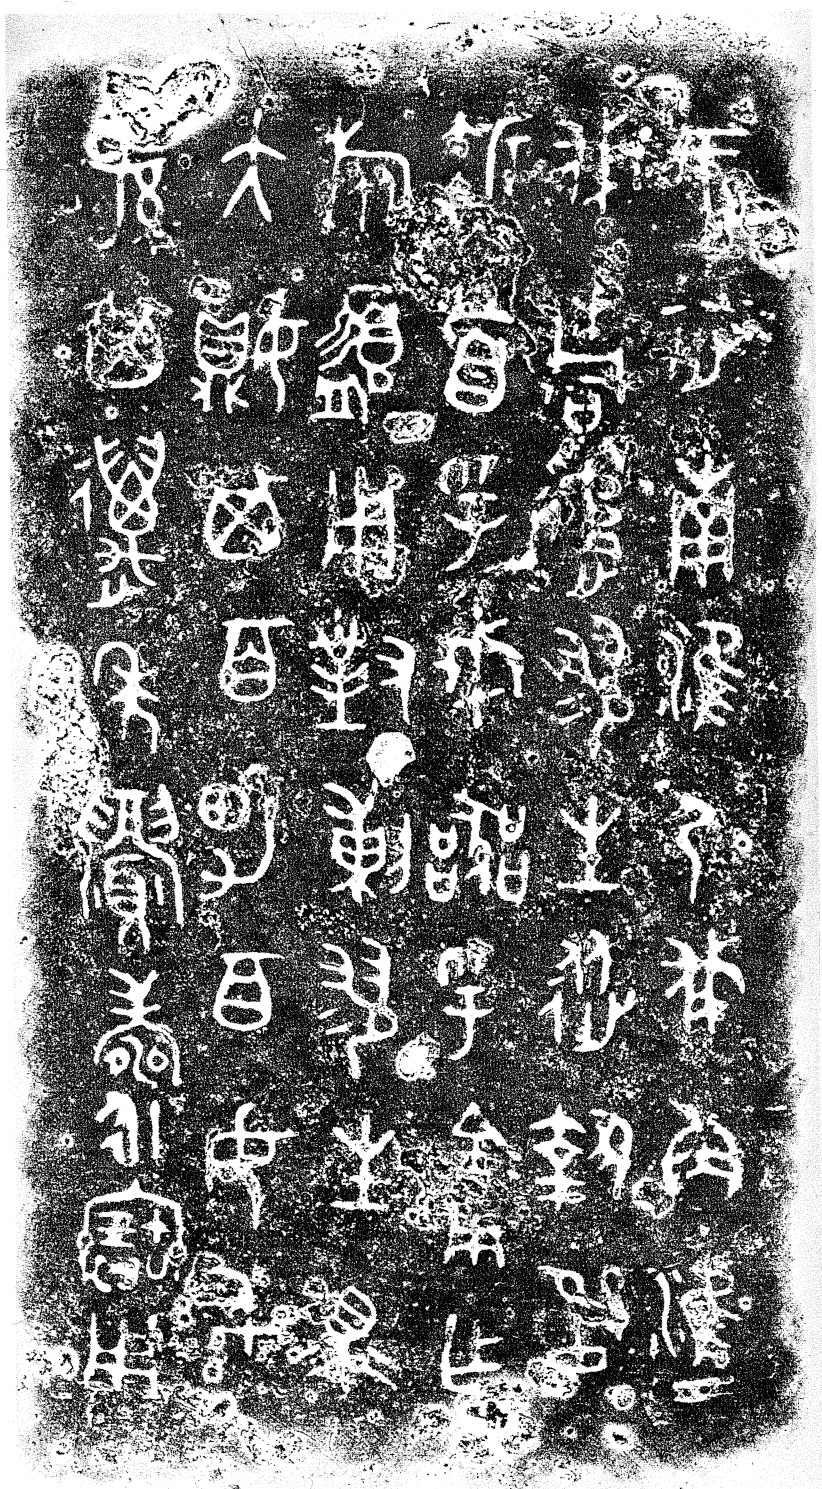 王征南淮尸伐角津
伐桐遹翏生從執訊
折首孚戎器孚金用乍
旅盨用對剌翏生眔
大娟其百男百女千
孫其邁年眉壽永寶用